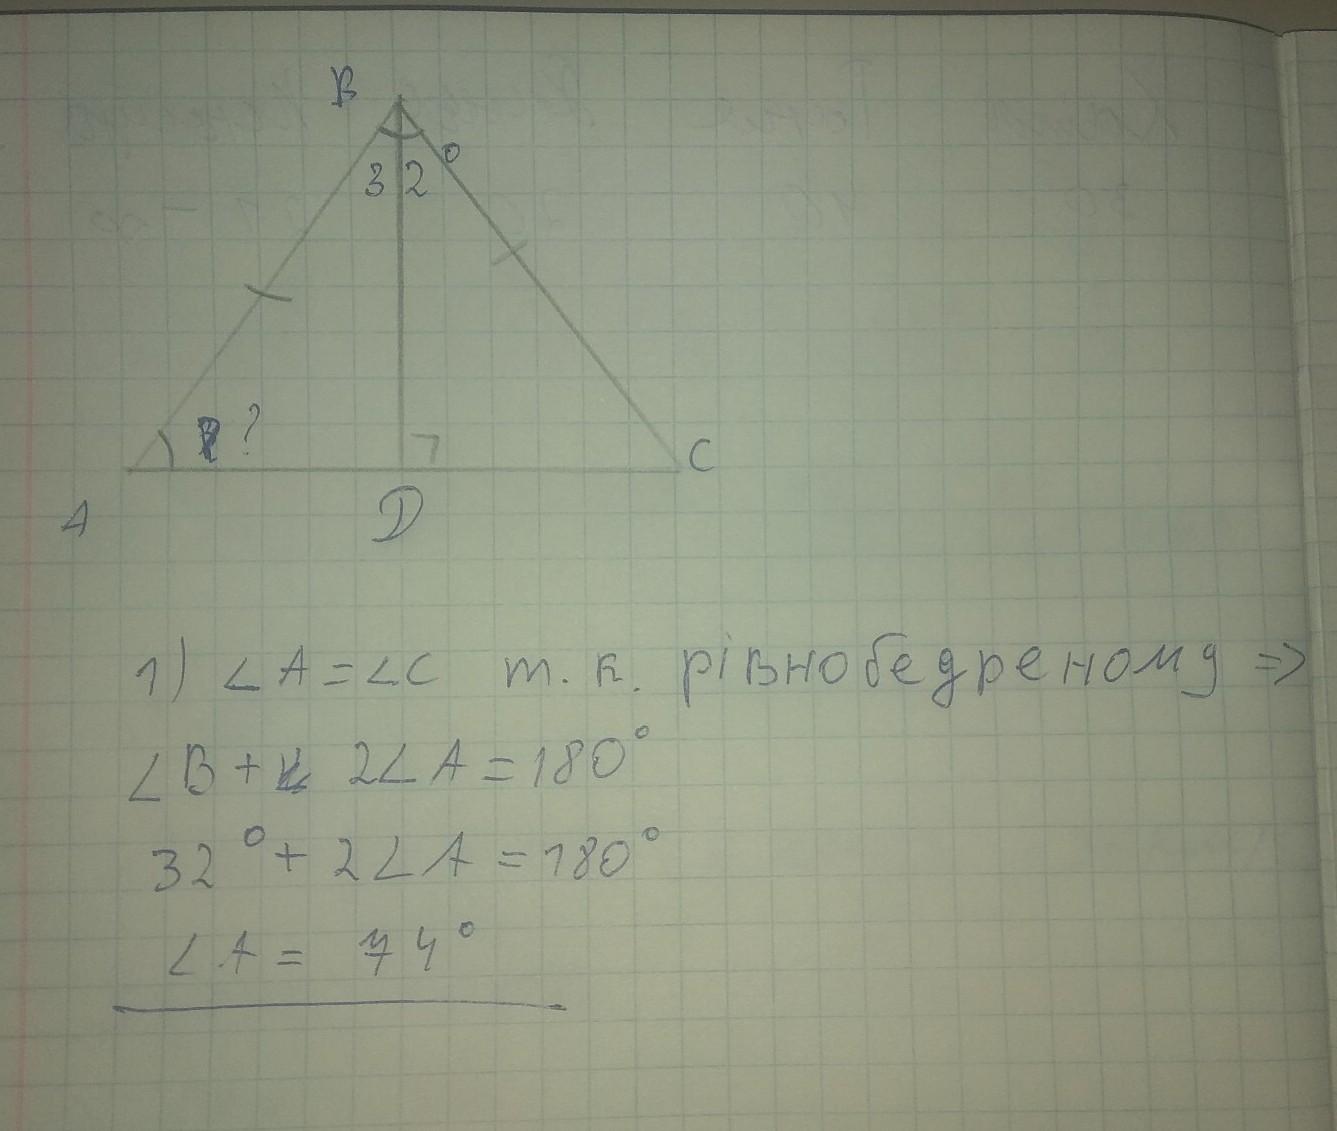 B
32°
?
C
A
D
1) ∠A=∠C т.к. рівнобедреному =>
∠B+ 2∠A=180°
32°+2∠A=180°
∠A= 74°